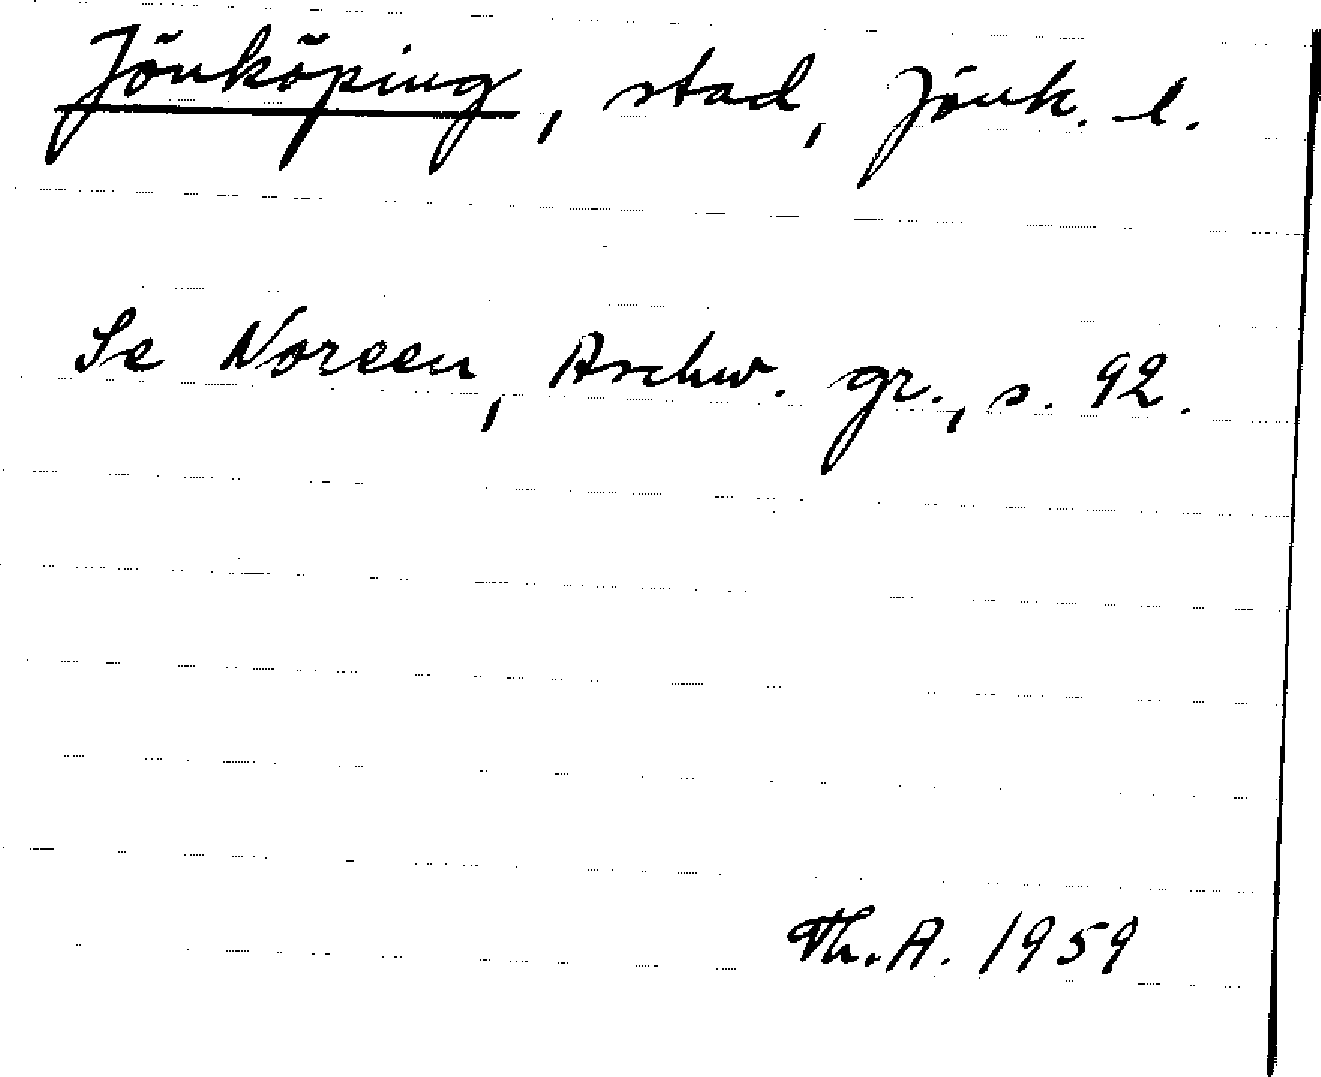 Jönköping, stad, Jönk. l.
Se Noreen, Aschw. gr., s. 92.
Th.A. 1959